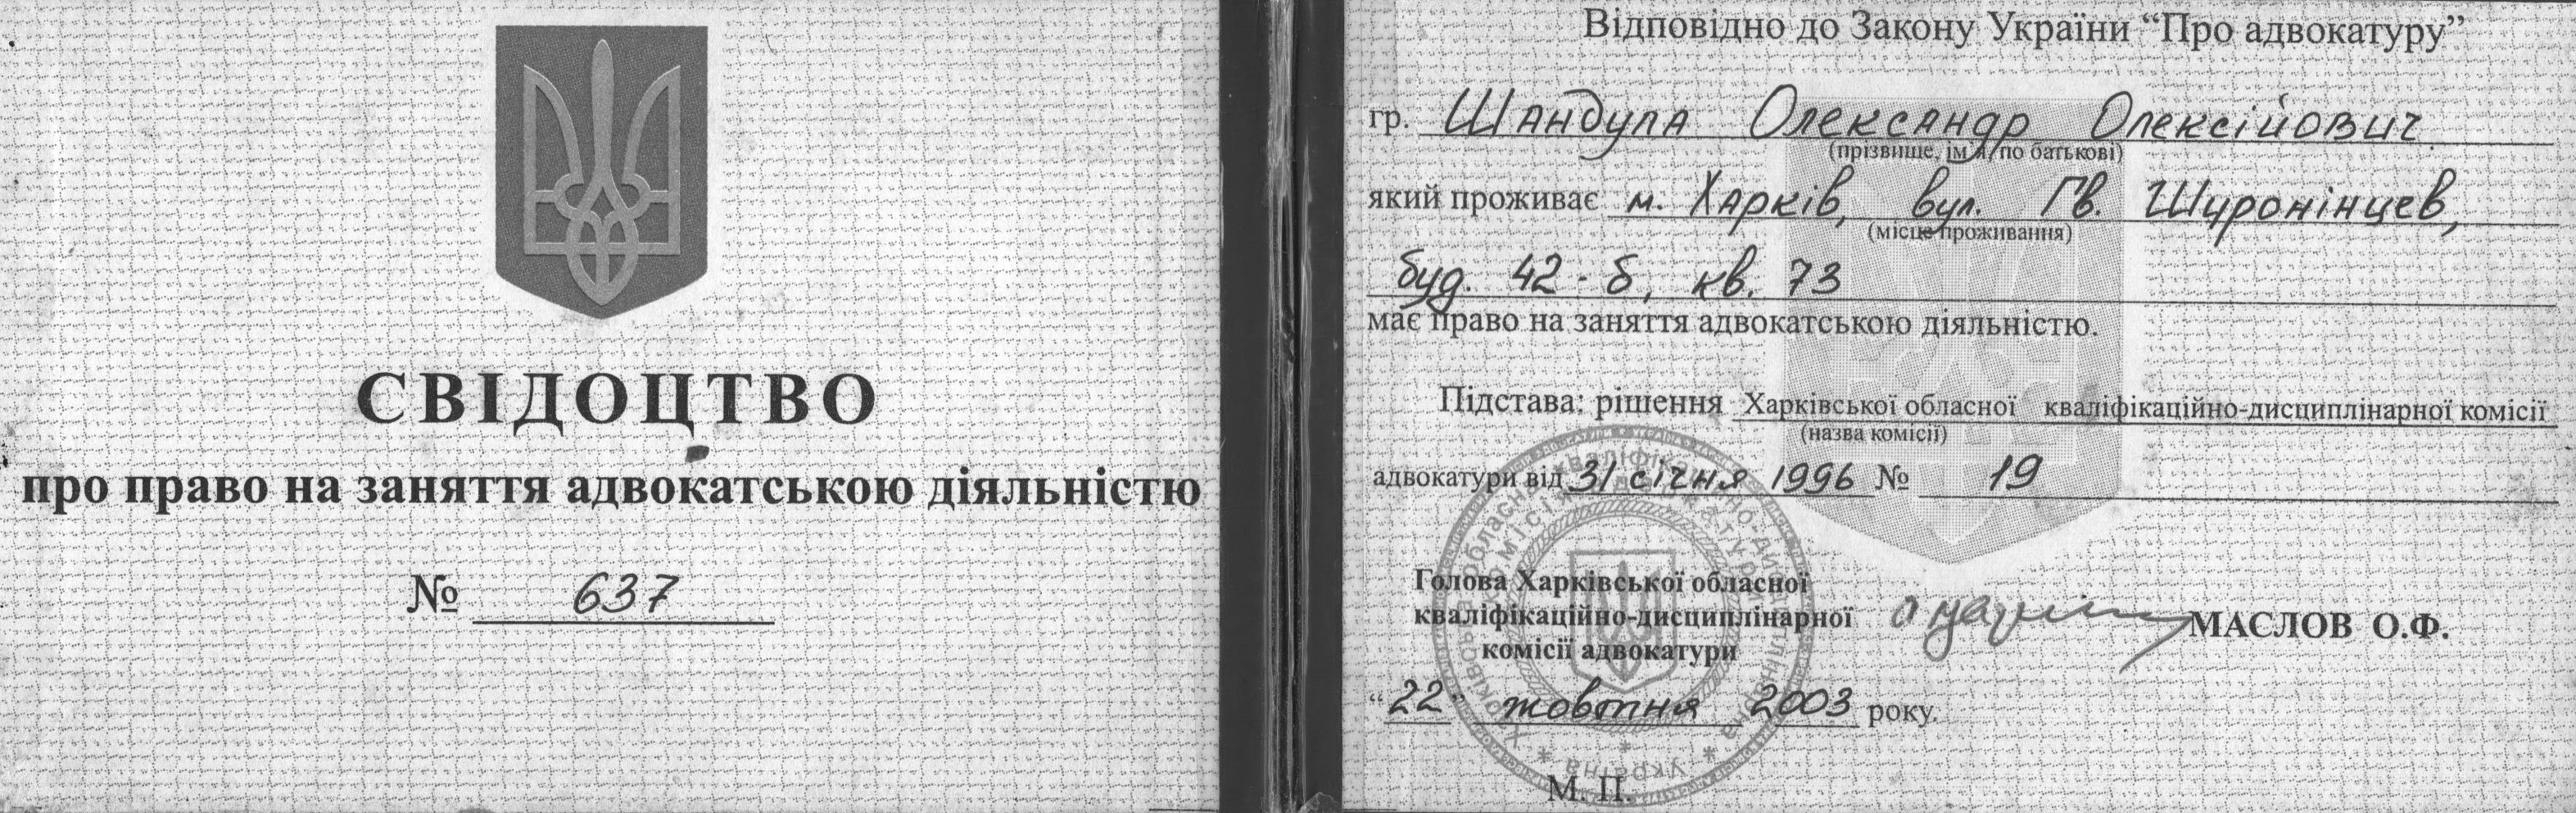 СВІДОЦТВО
про право на заняття адвокатською діяльністю
№ 637
Відповідно до Закону України “Про адвокатуру”
гр. Шандула Олександр Олексійович
(прізвище, ім'я, по батькові)
який проживає м. Харків, вул. Гв. Широнінцев,
(місце проживання)
буд. 42-б, кв. 73
має право на заняття адвокатською діяльністю.
Підстава: рішення Харківської обласної кваліфікаційно-дисциплінарної комісії
(назва комісії)
адвокатури від 31 січня 1996 № 19
Голова Харківської обласної
кваліфікаційно-дисциплінарної
комісії адвокатури
МАСЛОВ О.Ф.
“22” жовтня 2003 року.
М. П.
* Україна *